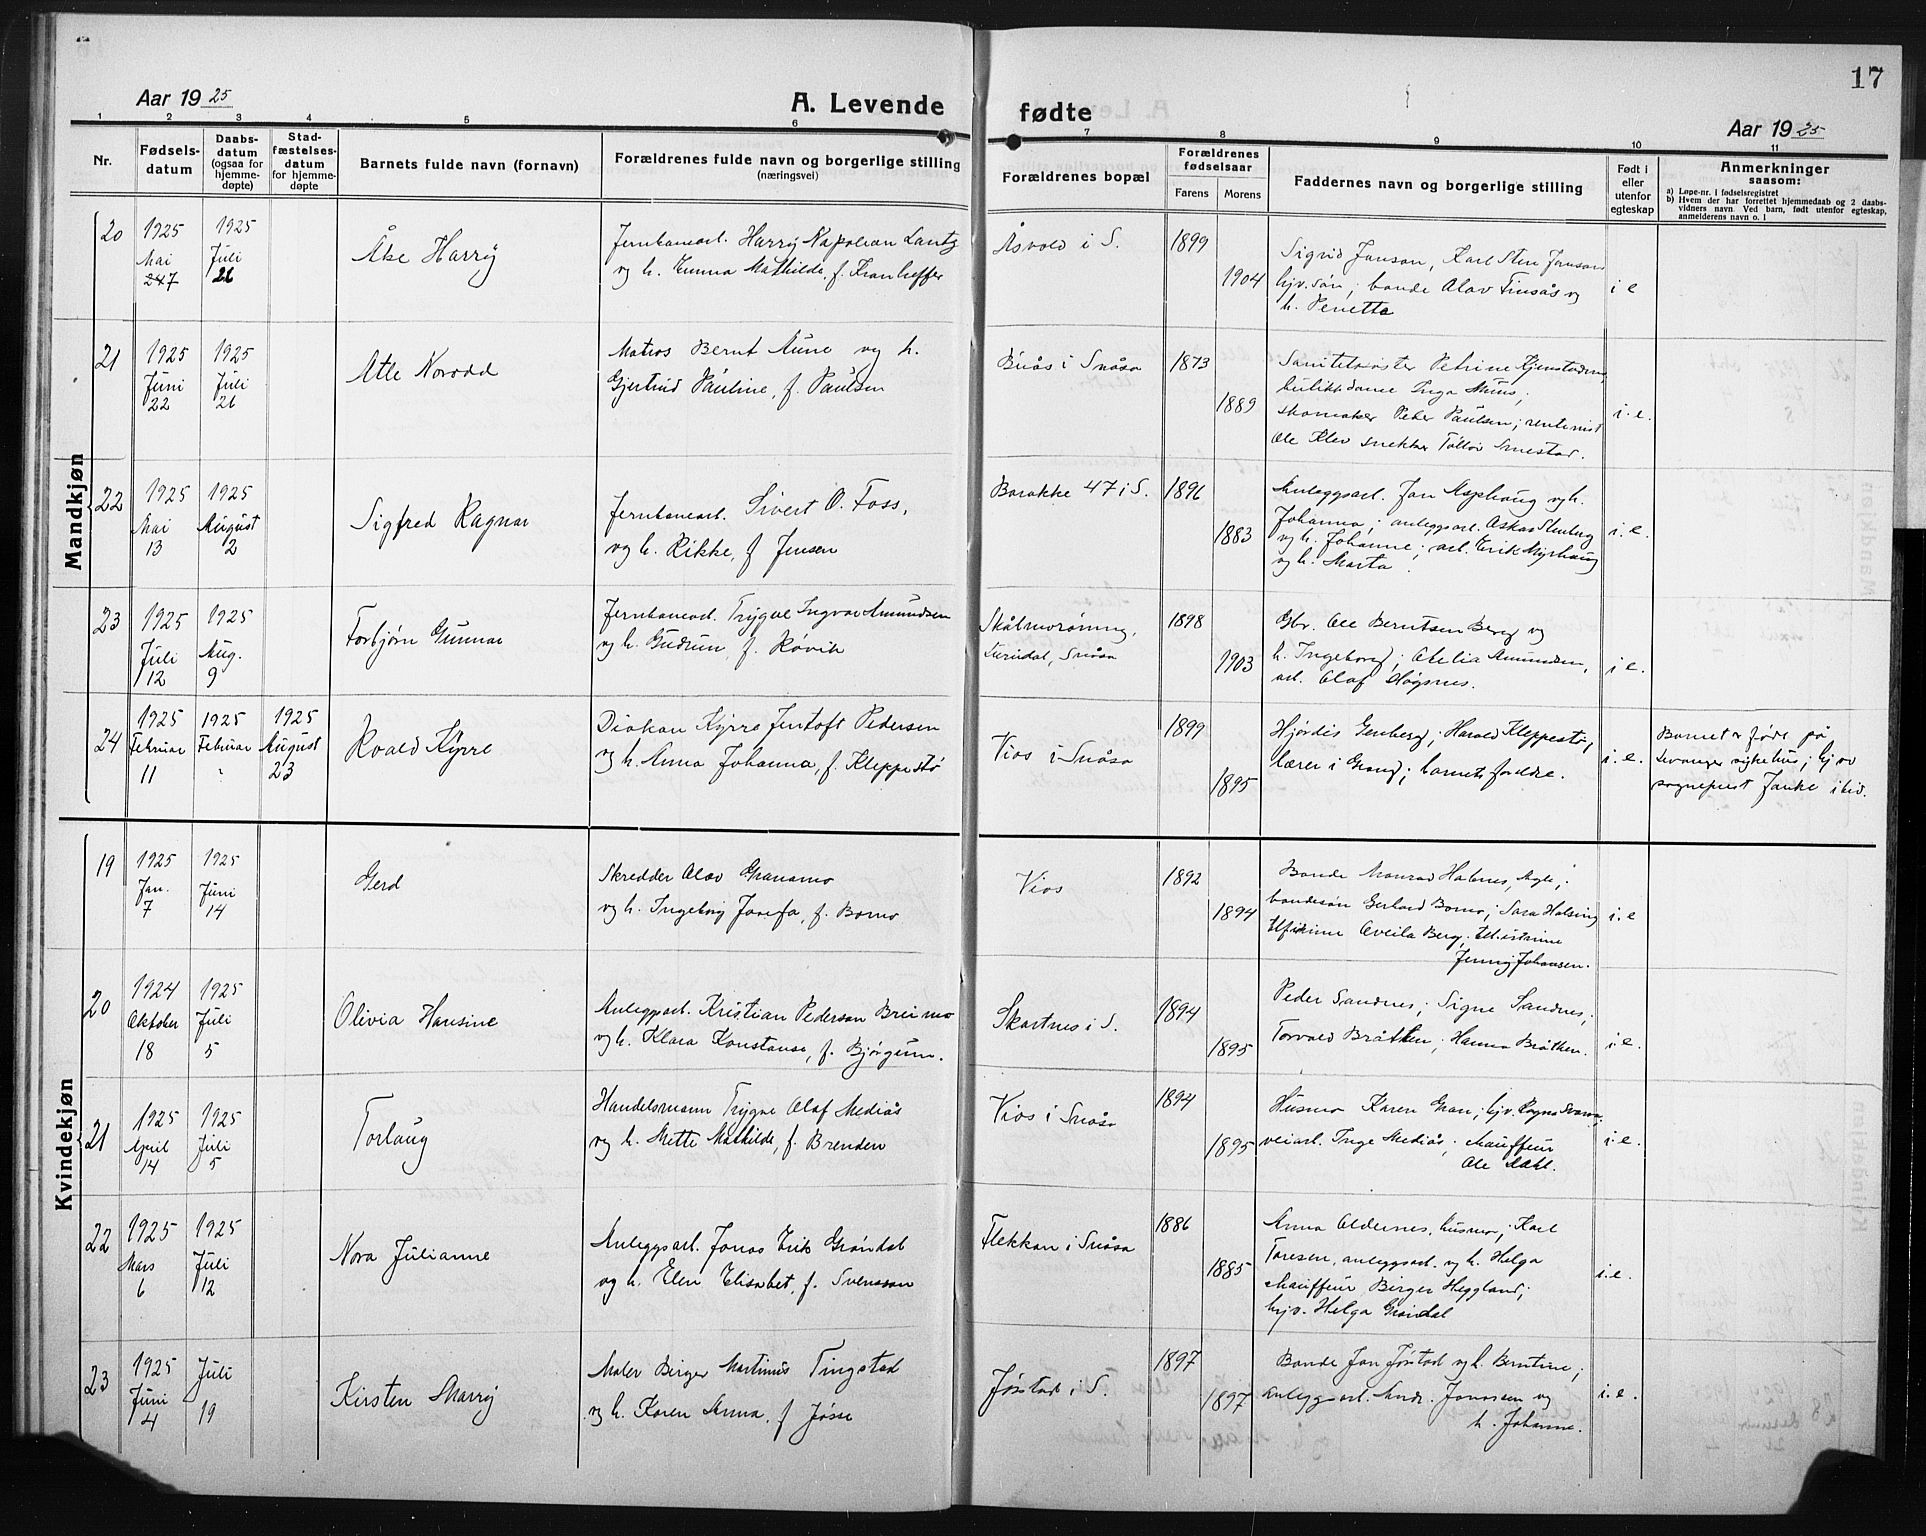 17
Aar 1925
A. Levende
fødte
Aar 1925
1 2 3 4 5 6 7 8 9 10 11
Nr.
Fødsels-
datum
Daabs-
datum
(ogsaa for
hjemme-
døpte)
Stad-
fæstelses-
datum
for hjemme-
døpte
Barnets fulde navn (fornavn)
Forældrenes fulde navn og borgerlige stilling
(næringsvei)
Forældrenes bopæl
Forældrenes
fødselsaar
Farens
Morens
Faddernes navn og borgerlige stilling
Født i
eller
utenfor
egteskap
Anmerkninger
saasom:
a) Løpe-nr. i fødselsregistret
b) Hvem der har forrettet hjemmedaab og 2 daabs-
vidners navn Ved barn, født utenfor egteskap,
anmelderens navn o. l
Mandkjøn
20
1925
Mai
1925
Juli
Åke Harry
Jernbanearb. Harry Napolian Lantz
og h. Emma Mathilde, f.
Åsvold i S.
1899
1904
Sigrid Janson, Karl Sten Janson
hjv. søn; bonde Olav Finsås og
h. Penette
i e
21
1925
Juni
22
1925
Juli
26
Atle Norodd
Matros Bernt Aune og h.
Gjertrud Pauline, f. Paulsen
Buås i Snåsa
1873
1889
Petrine
butikkdame Inga
skomaker Peter Paulsen; rentenist
Ole Klev snekker
i. e.
22
1925
Mai
13
1925
August
2
Sigfred Ragnar
Jernbanearb. Sivert O. Foss,
og h. Rikke, f. Jensen
Barakke 47 i S.
1896
1883
Anleggsarb. Jon Asphaug og h.
Johanna; anleggsarb. Oskar Stenberg
og h. Johanne; arb. Erik Myrhaug
og h. Marta.
i. e.
23
1925
Juli
12
1925
Aug.
9
Torbjørn Gunnar
Jernbanearb. Trygve Ingvar Amundsen
og h. Gudrun, f. Røvik
Snåsa
1898
1903
Gbr. Ole Berntsen Berg og
h. Ingeborg; Otelia Amundsen,
arb. Olaf Høgsnes.
i e.
24
1925
Februar
11
1925
Februar
1925
August
23
Roald Kyrre
Diakon Kyrre Jentoft Pedersen
og h. Anna Johanna, f. Kleppestø
Vios i Snåsa
1899
1895
Hjørdis Genberg; Harald Kleppestø,
lærer i Grong; barnets foreldre.
i. e.
Barnet er født på
Levanger sykehus; hj. av
sogneprest Janke i liv.
Kvindekjøn
19
1925
Jan.
7
1925
Juni
14
Gerd
Skredder Olav Granamo
og h. Ingeborg Josefa, f. Bomo
Vios
1892
1894
Bonde Monrad Halsnes, Agle;
bondesøn Gerhard Bomo; Sara Halsing
Berg;
Jenny Johansen.
i. e
20
1924
Oktober
18
1925
Juli
5
Olivia Hansine
Anleggsarb. Kristian Pederson Breimo
og h. Klara Konstanse, f. Bjørgum.
Skartnes i S.
1894
1895
Peder Sandnes; Signe Sandnes;
Torvald Bråtten; Hanna Bråtten.
i. e.
21
1925
April
14
1925
Juli
5
Torlaug
Handelsmann Trygve Olaf Mediås
og h. Mette Mathilde, f. Brenden
Vios i Snåsa
1894
1895
Husmo Karen Gran; hjv. Ragna
veiarb. Inge Mediås; chauffeur
Ole Dahl.
i. e.
22
1925
Mars
6
1925
Juli
12
Nora Julianne
Anleggsarb. Jonas Erik Grøndal
og h. Elen Elisabet, f. Svensson
Flekkan i Snåsa
1886
1885
Anna Oldernes, husmo; Karl
Toresen, anleggsarb. og h. Helga
chauffeur Birger Heggland;
hjv. Helga Grøndal
i. e.
23
1925
Juni
4
Juli
19
Kirsten Marry
Maler Birger Martinus Tingstad
og h. Karen Anna, f. Jøsse
Jøstad i S.
1897
1897
Bonde Jon Jøstad og h. Berntine;
anleggsarb. Andr. Jonassen og
h. Johanne.
i. e.